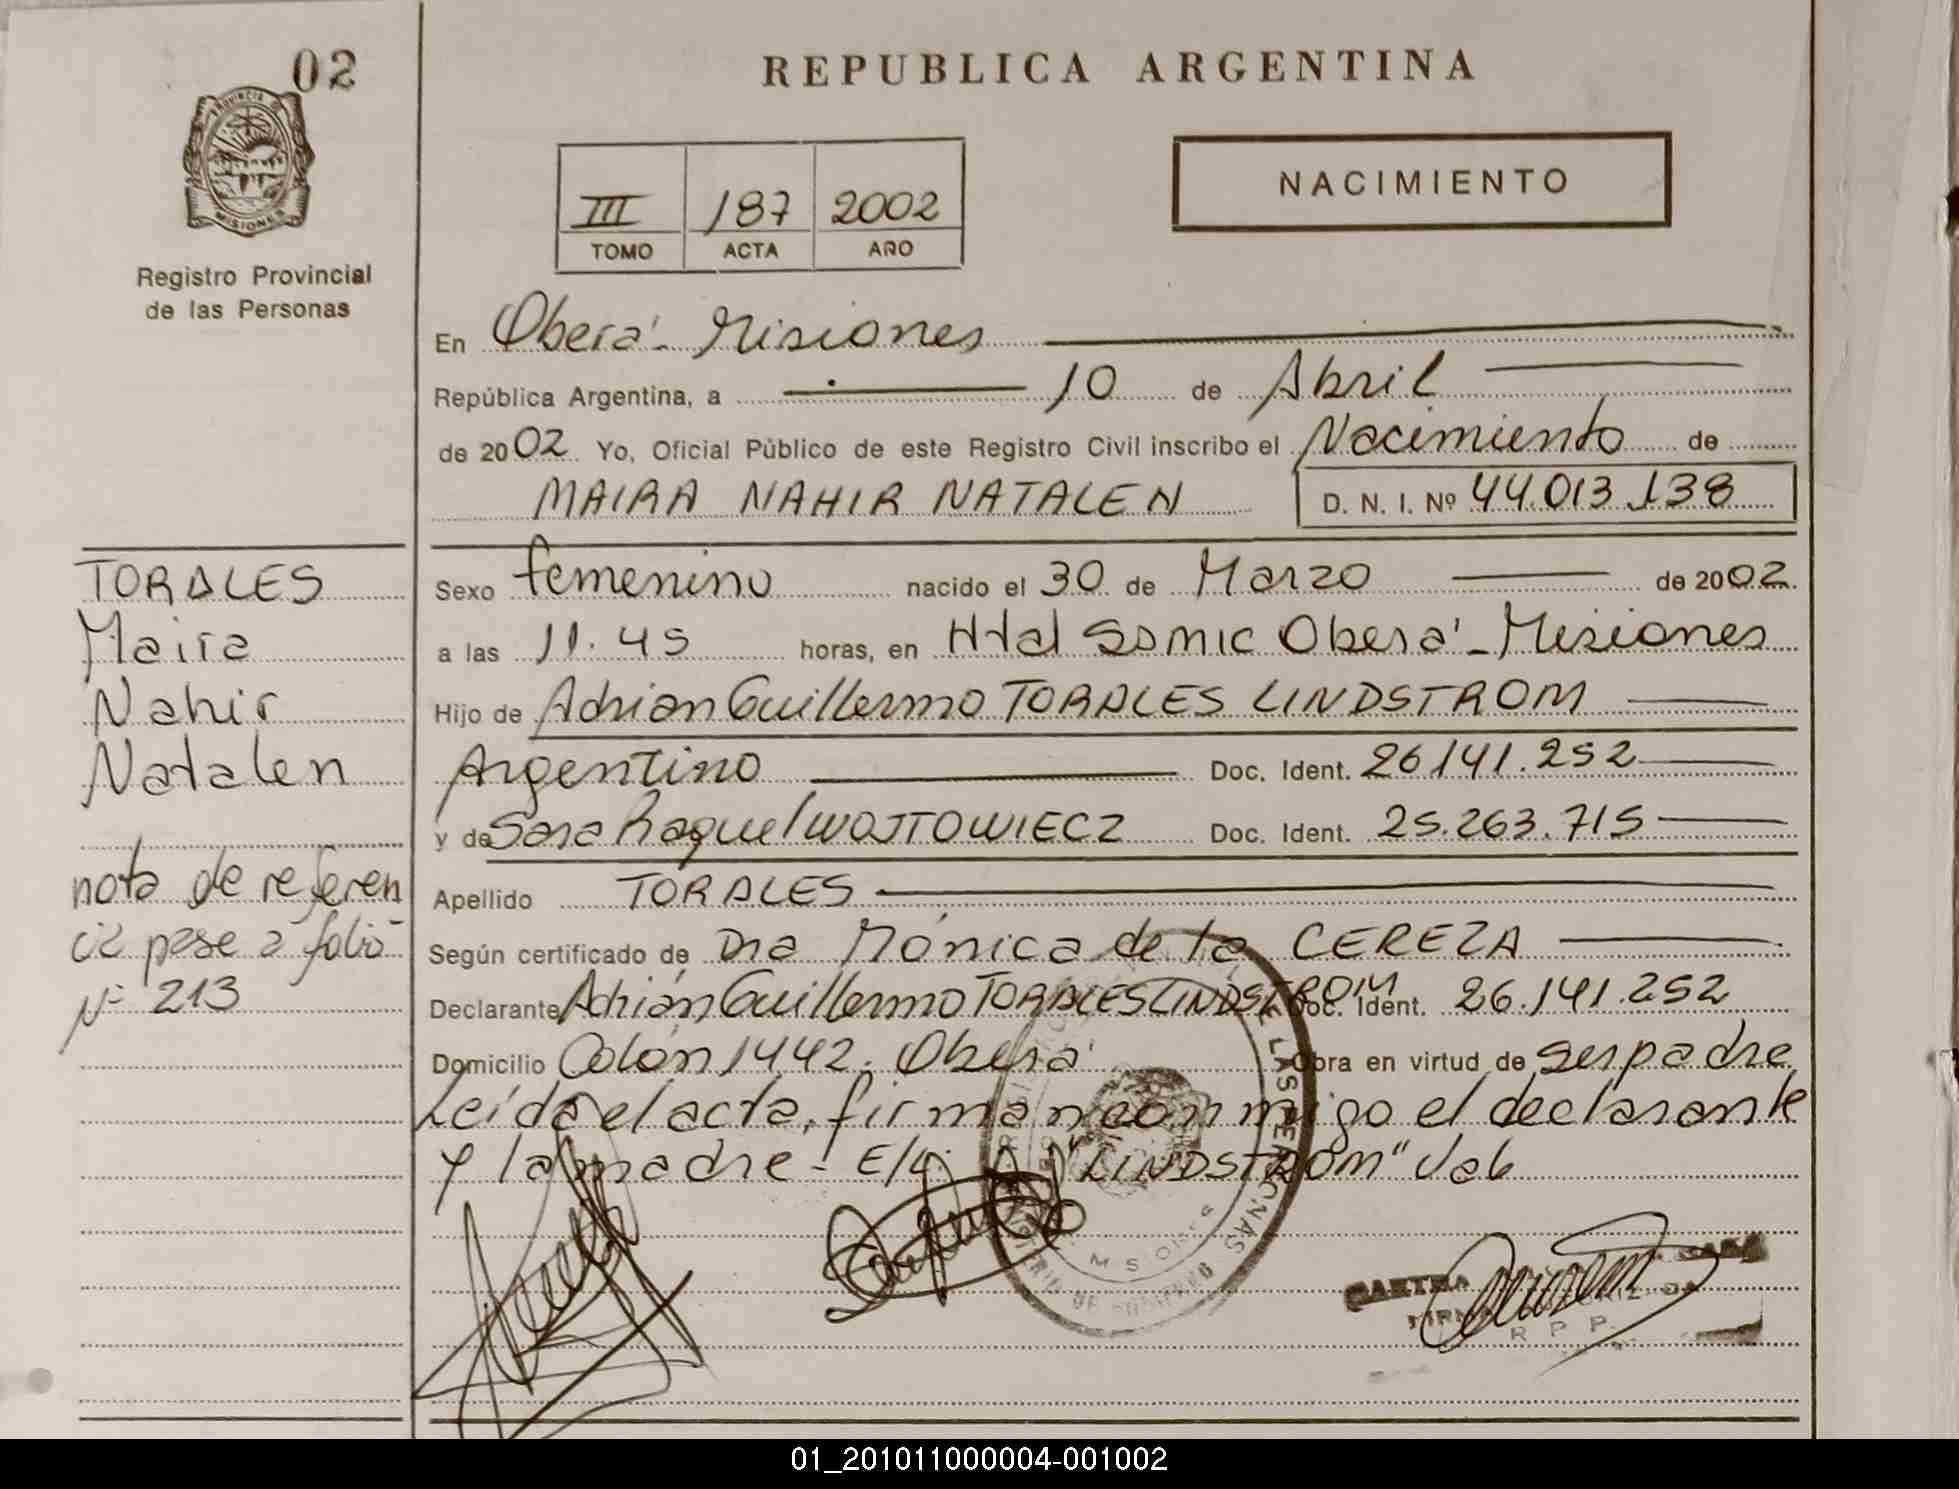 02
PROVINCIA DE
MISIONES
Registro Provincial
de las Personas
REPUBLICA ARGENTINA
III 187 2002
TOMO ACTA AÑO
NACIMIENTO
En Oberá - Misiones
República Argentina, a 10 de Abril
de 2002 Yo, Oficial Público de este Registro Civil inscribo el Nacimiento de
MAIRA NAHIR NATALEN D. N. I. Nº 44.013.138
Sexo femenino nacido el 30 de Marzo de 2002.
a las 11.45 horas, en Htal Samic Oberá - Misiones
Hijo de Adrian Guillermo TORALES LINDSTROM
Argentino Doc. Ident. 26.141.252
y de Sara Raquel WOJTOWIECZ Doc. Ident. 25.263.715
Apellido TORALES
Según certificado de Dra Mónica de la CEREZA
Declarante Adrián Guillermo TORALES LINDSTROM Doc. Ident. 26.141.252
Domicilio Colón 1442. Oberá Obra en virtud de ser padre
Leída el acta, firman conmigo el declarante
y la madre - E/L. "LINDSTROM" Vale
TORALES
Maira
Nahir
Natalen
nota de referen
cia pase a folio
Nº 213
DE LAS PERSONAS
R P P
01_201011000004-001002